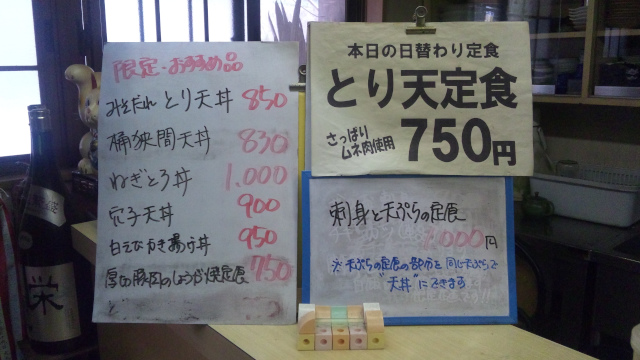 限定・おすすめ品
みそだれ とり天丼 850
桶狭間天丼 830
ねぎとろ丼 1.000
穴子天丼 900
白えびかき揚げ丼 950
厚切豚肉のしょうが焼定食 750
本日の日替わり定食
とり天定食
さっぱり
ムネ肉使用
750円
刺身と天ぷらの定食
1000円
※天ぷらの定食の部分を同じ天ぷらで
"天丼"にできます
栄